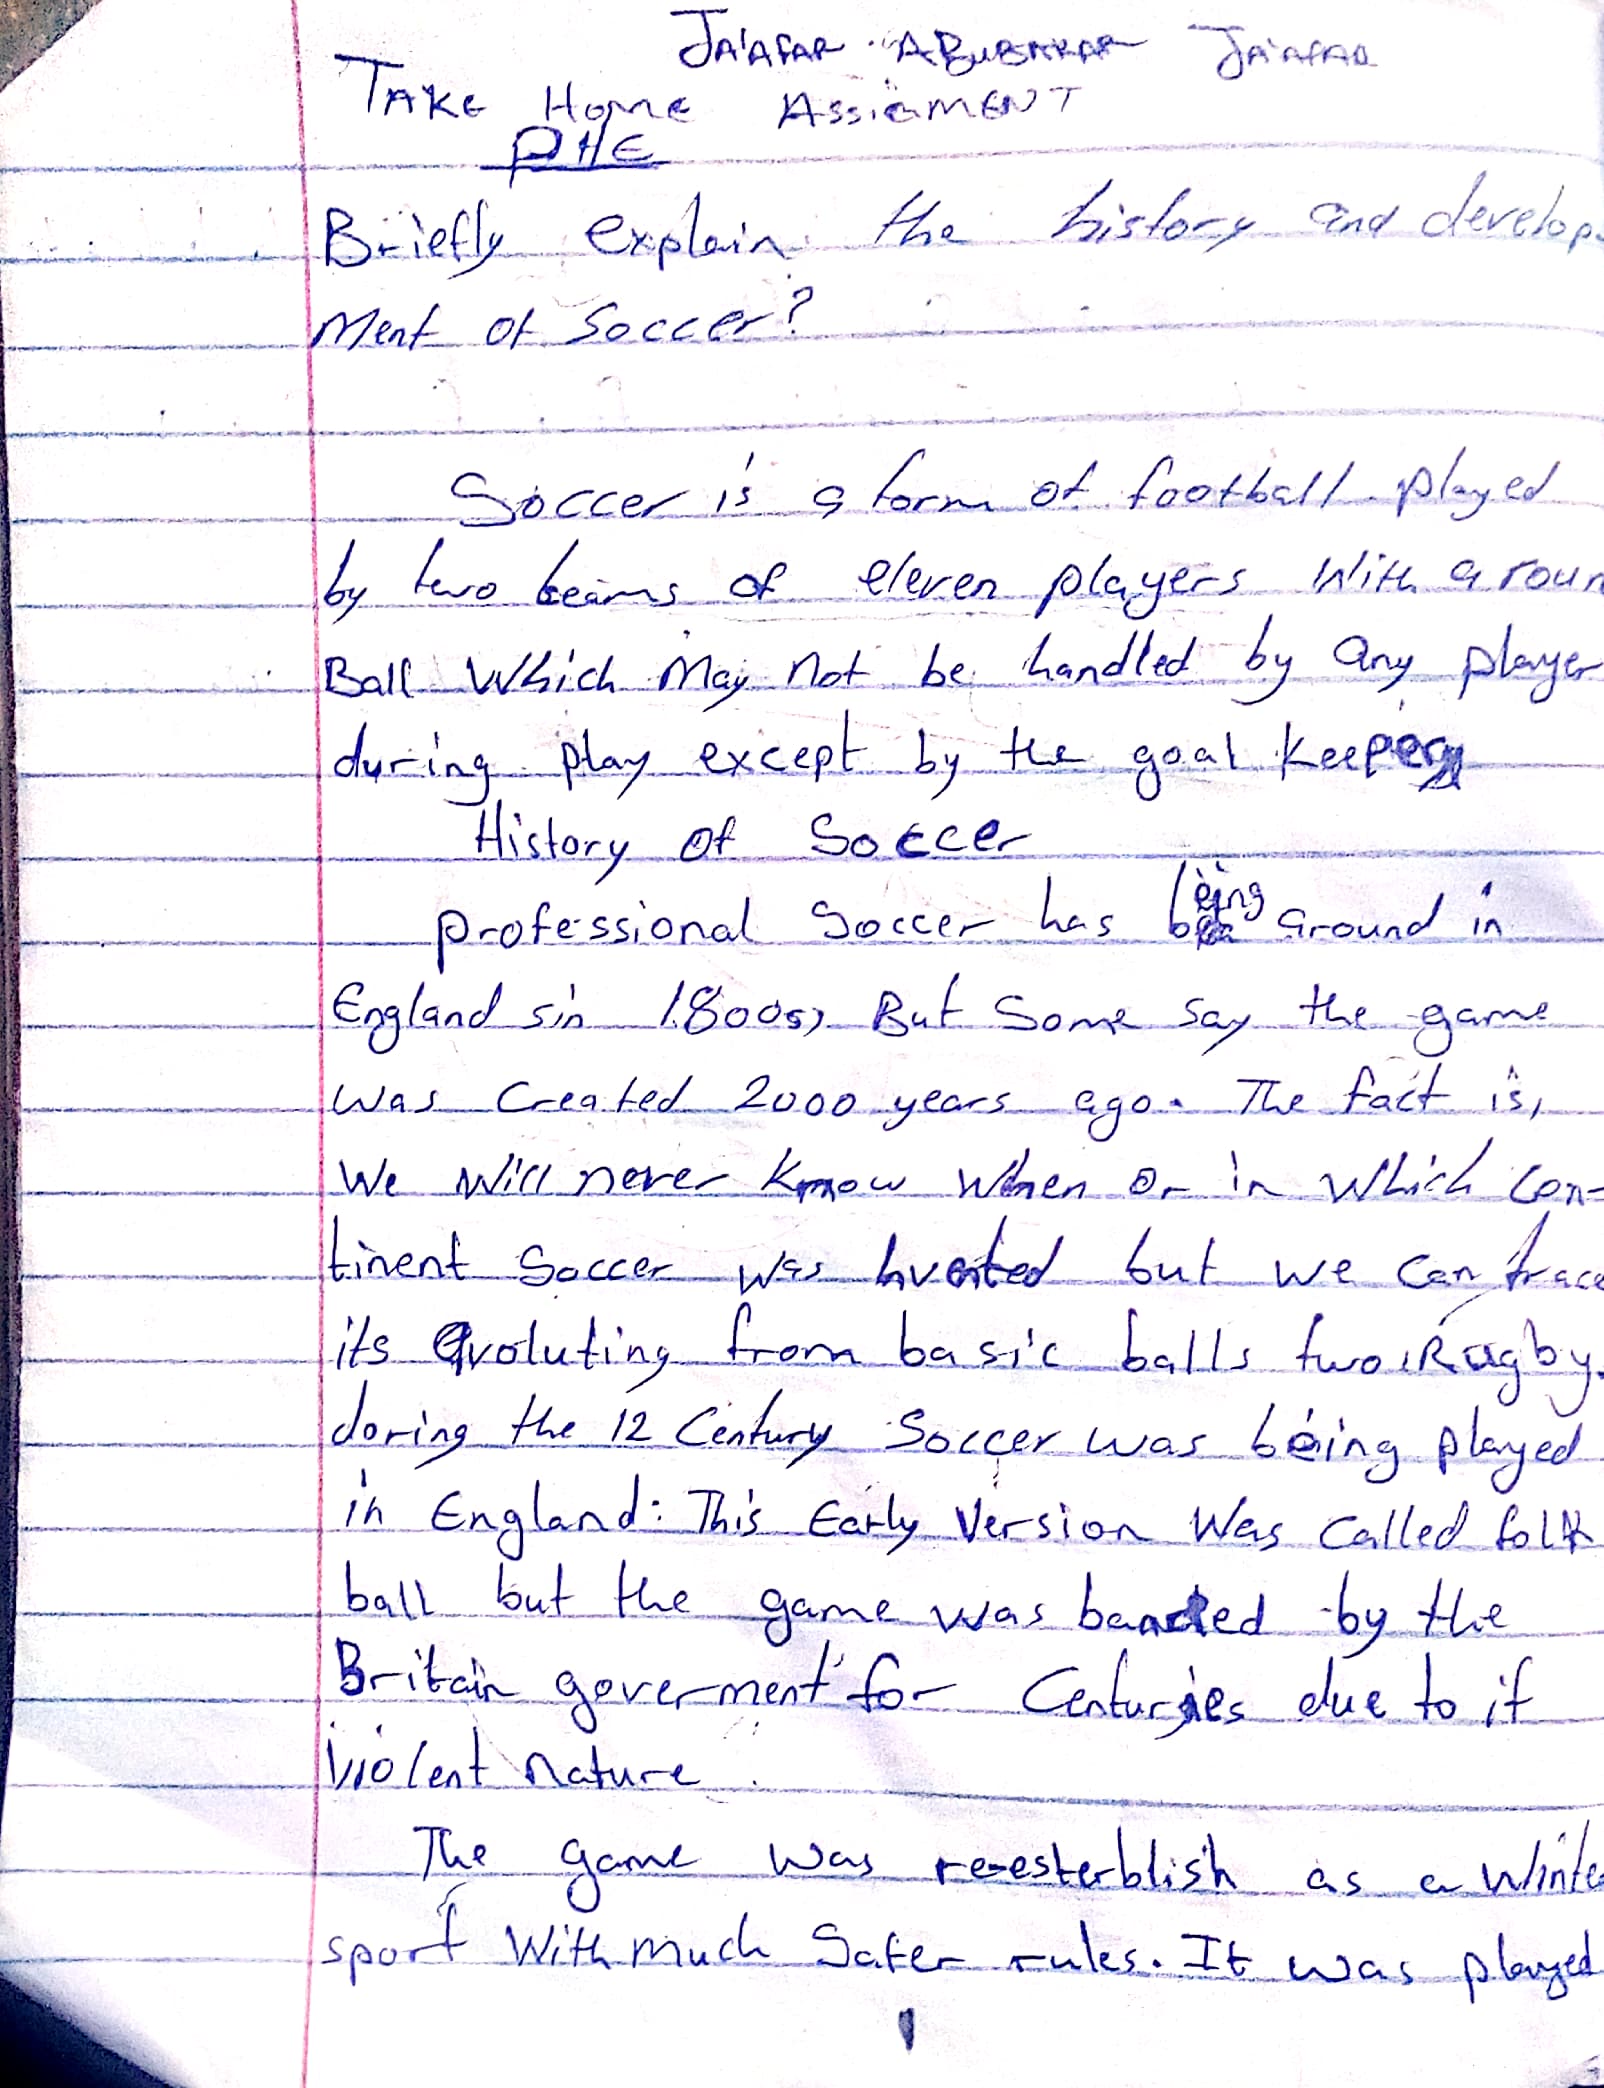 JA'AFAR ABUBAKAR JA'AFAR
TAKE HOME ASSIGMENT
PHE
Briefly explain the history and develop-
ment of Soccer?
Soccer is a form of football played
by two teams of eleven players with a roun
Ball which may not be handled by any player
during play except by the goal keeper
History of Soccer
professional Soccer has being around in
England sin 1800s, But Some say the game
was created 2000 years ago. The fact is,
we will never know when or in which con-
tinent Soccer was but we can trace
its evoluting from basic balls two Rugby.
doring the 12 Century Soccer was being played
in England: This Early Version was called folk
ball but the game was banded by the
Britain goverment for Centuries due to it
violent nature.
The game was re-esterblish as a winte
sport with much Safer rules. It was played
1